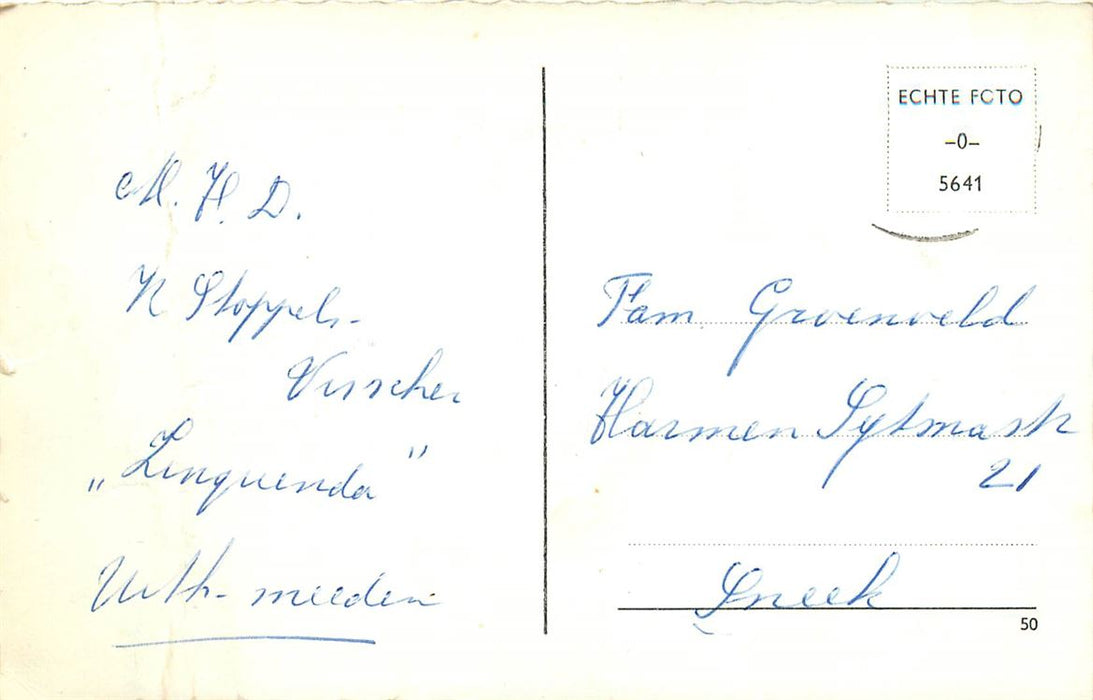 M. H. D.
K Stoppels-
Visscher
„Linquenda”
Uith-meeden
ECHTE FOTO
-0-
5641
Fam Groenveld
Harmen Sytmastr
21
Sneek
50